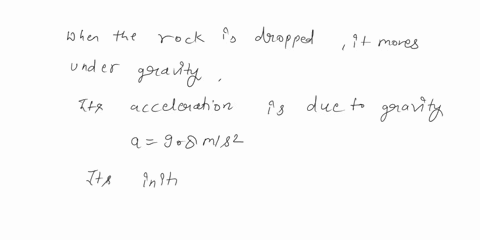 When the rock is dropped, it moves
under gravity.
Its acceleration is due to gravity
a = 9.8 m/s2
Its init